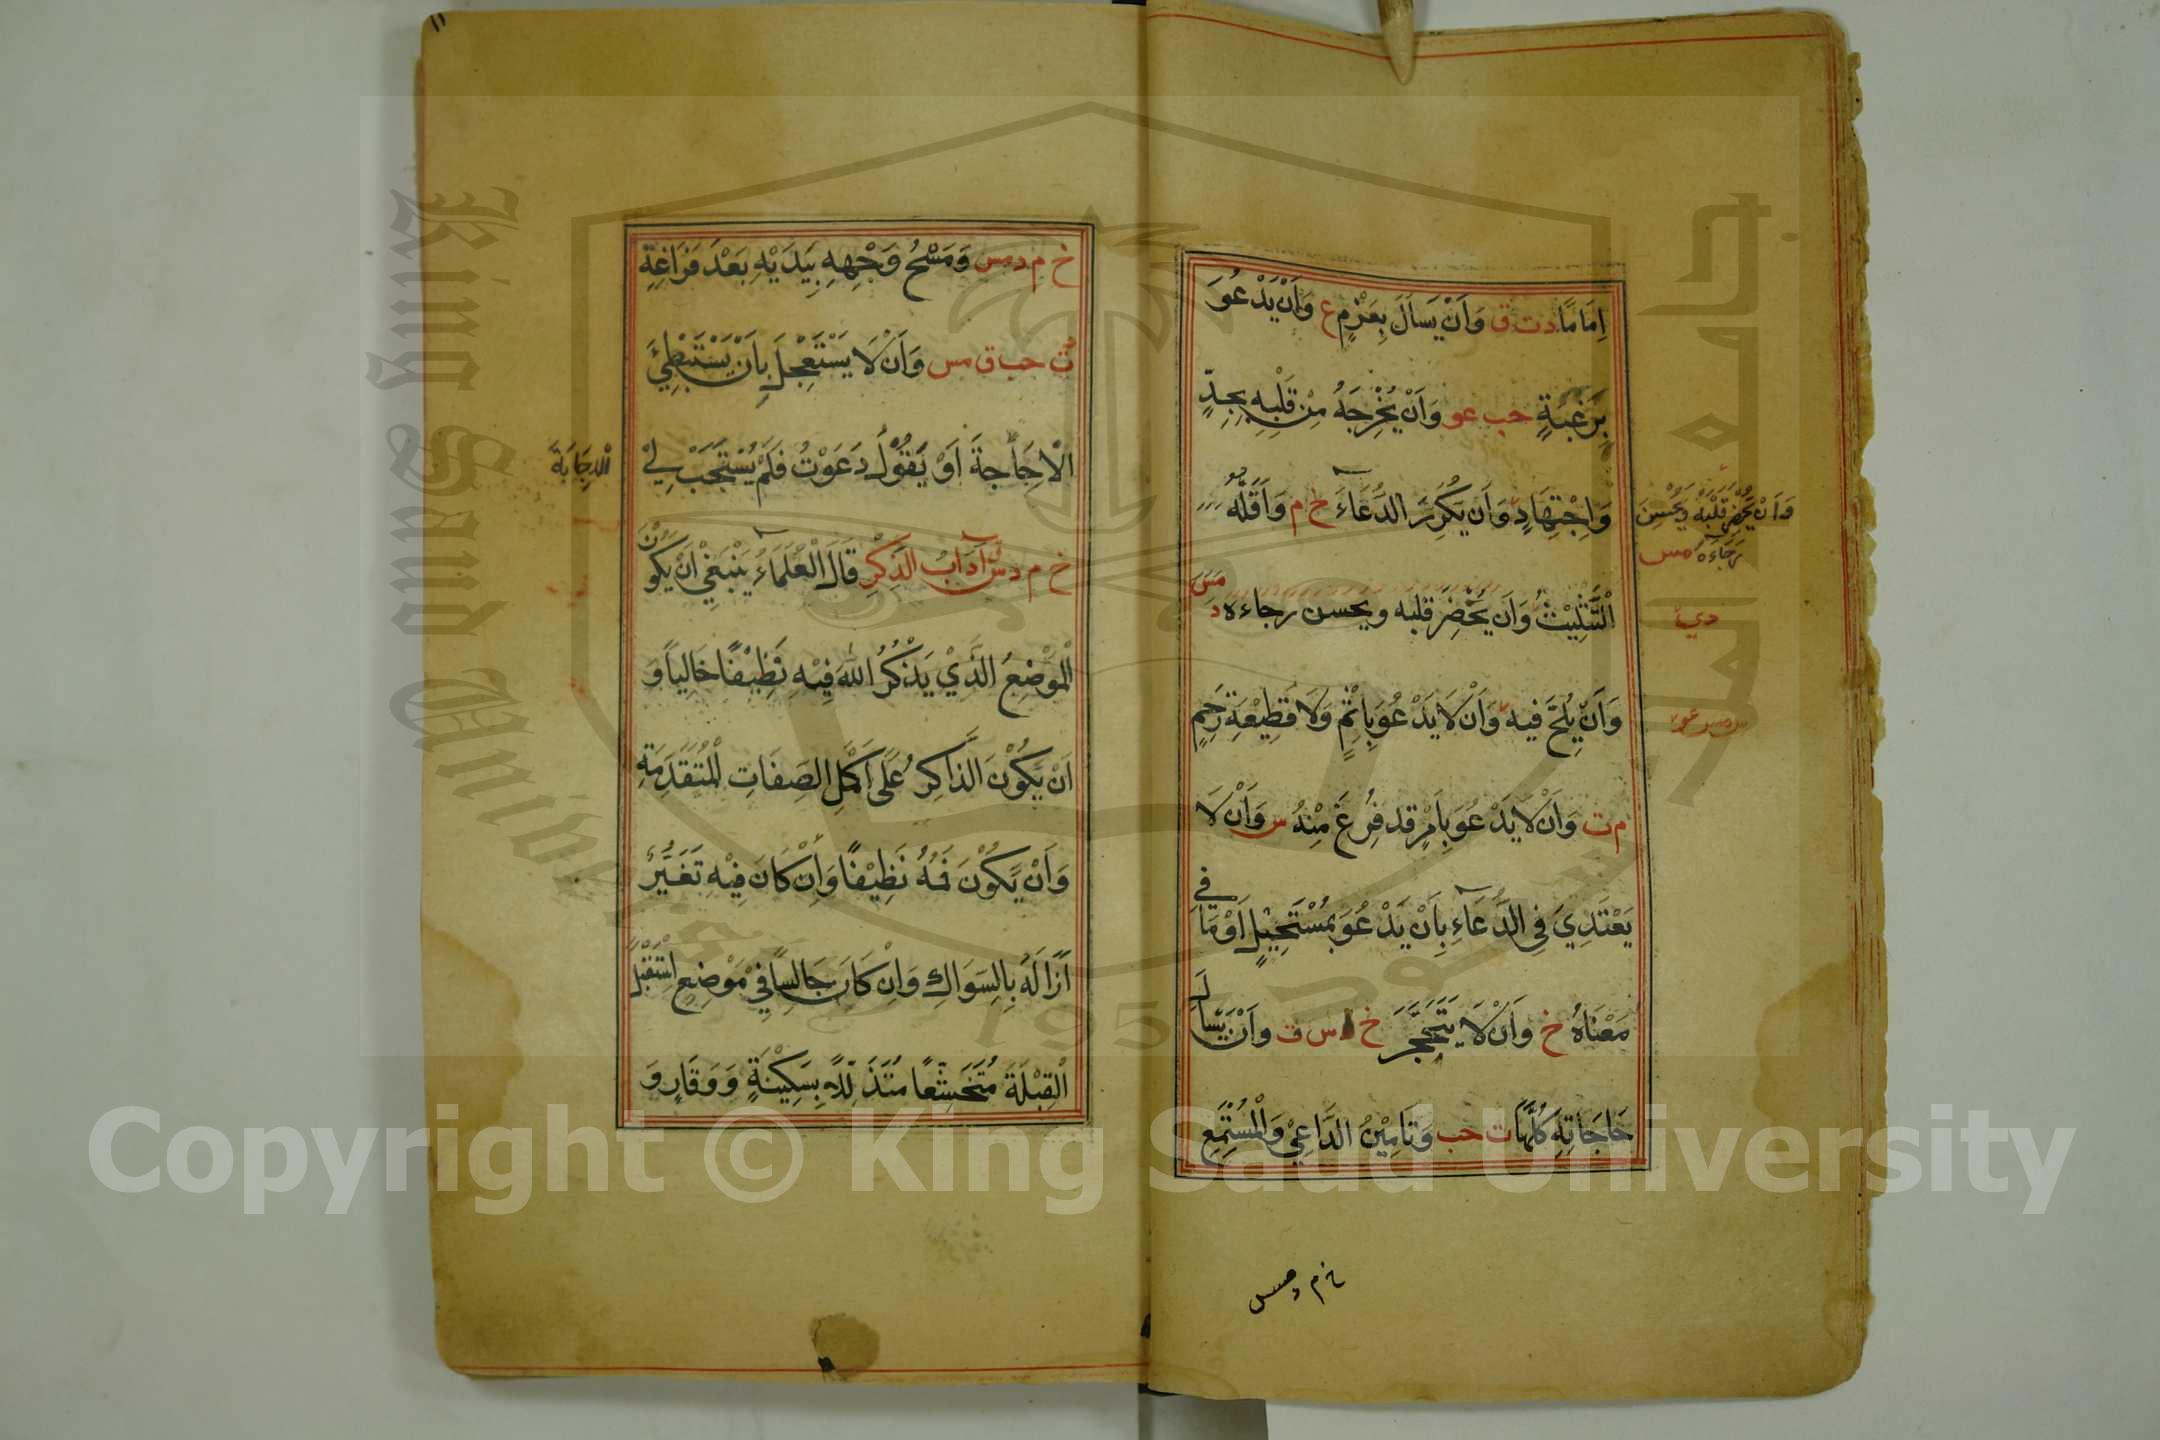 اِمَامًا د ت ق وَاَنْ يَسْاَلَ بِعَزْمٍ ع وَاَنْ يَدْعُوَ
بِرَغْبَةٍ حب عو وَاَنْ يُخْرِجَهُ مِنْ قَلْبِهِ بِجِدٍّ
وَاجْتِهَادٍ وَاَنْ يُكَرِّرَ الدُّعَاءَ خ م وَاَقَلُّهُ
التَّثْلِيْثُ وَاَنْ يُحْضِرَ قلبه ويحسن رجاءه د مس
وَاَنْ يُلِحَّ فيه وَاَنْ لَا يَدْعُوَ بِاِثْمٍ وَلَا قَطِيْعَةِ رَحِمٍ
م ت وَاَنْ لَا يَدْعُوَ بِاَمْرٍ قد فُرِغَ مِنْهُ س وَاَنْ لَا
يَعْتَدِيَ فِي الدُّعَاءِ بِاَنْ يَدْعُوَ بِمُسْتَحِيْلٍ اَوْ مَا فِي
مَعْنَاهُ خ وَاَنْ لَا يَتَحَجَّرَ خ د س ق وَاَنْ يَسْاَلَ
حَاجَاتِهِ كُلَّهَا ت حب وَتَامِيْنُ الدَّاعِيْ وَالْمُسْتَمِعِ
وَاَنْ يُحْضِرَ قَلْبَهُ وَيُحْسِنَ
رَجَاءَهُ مس
د ي
س مس عو
خ م د مس
١١
خ م د مس وَمَسْحُ وَجْهِهِ بِيَدَيْهِ بَعْدَ فَرَاغِهِ
ت حب ق مس وَاَنْ لَا يَسْتَعْجِلَ بِاَنْ يَسْتَبْطِئَ
الْاِجَاجَةَ اَوْ يَقُوْلَ دَعَوْتُ فَلَمْ يُسْتَجَبْ لِيْ
الْاِجَابَةَ
خ م د س آدَابُ الذِّكْرِ قَالَ الْعُلَمَاءُ يَنْبَغِيْ اَنْ يَكُوْنَ
الْمَوْضِعُ الَّذِيْ يَذْكُرُ اللهَ فِيْهِ نَظِيْفًا خَالِيًا وَ
اَنْ يَكُوْنَ الذَّاكِرُ عَلَى اَكْمَلِ الصِّفَاتِ الْمُتَقَدِّمَةِ
وَاَنْ يَكُوْنَ فَمُهُ نَظِيْفًا وَاِنْ كَانَ فِيْهِ تَغَيُّرٌ
اَزَالَهُ بِالسِّوَاكِ وَاِنْ كَانَ جَالِسًا فِيْ مَوْضِعٍ اسْتَقْبَلَ
الْقِبْلَةَ مُتَخَشِّعًا مُتَذَلِّلًا بِسَكِيْنَةٍ وَوَقَارٍ وَ
King Saud University
جامعة الملك سعود
1957
Copyright © King Saud University